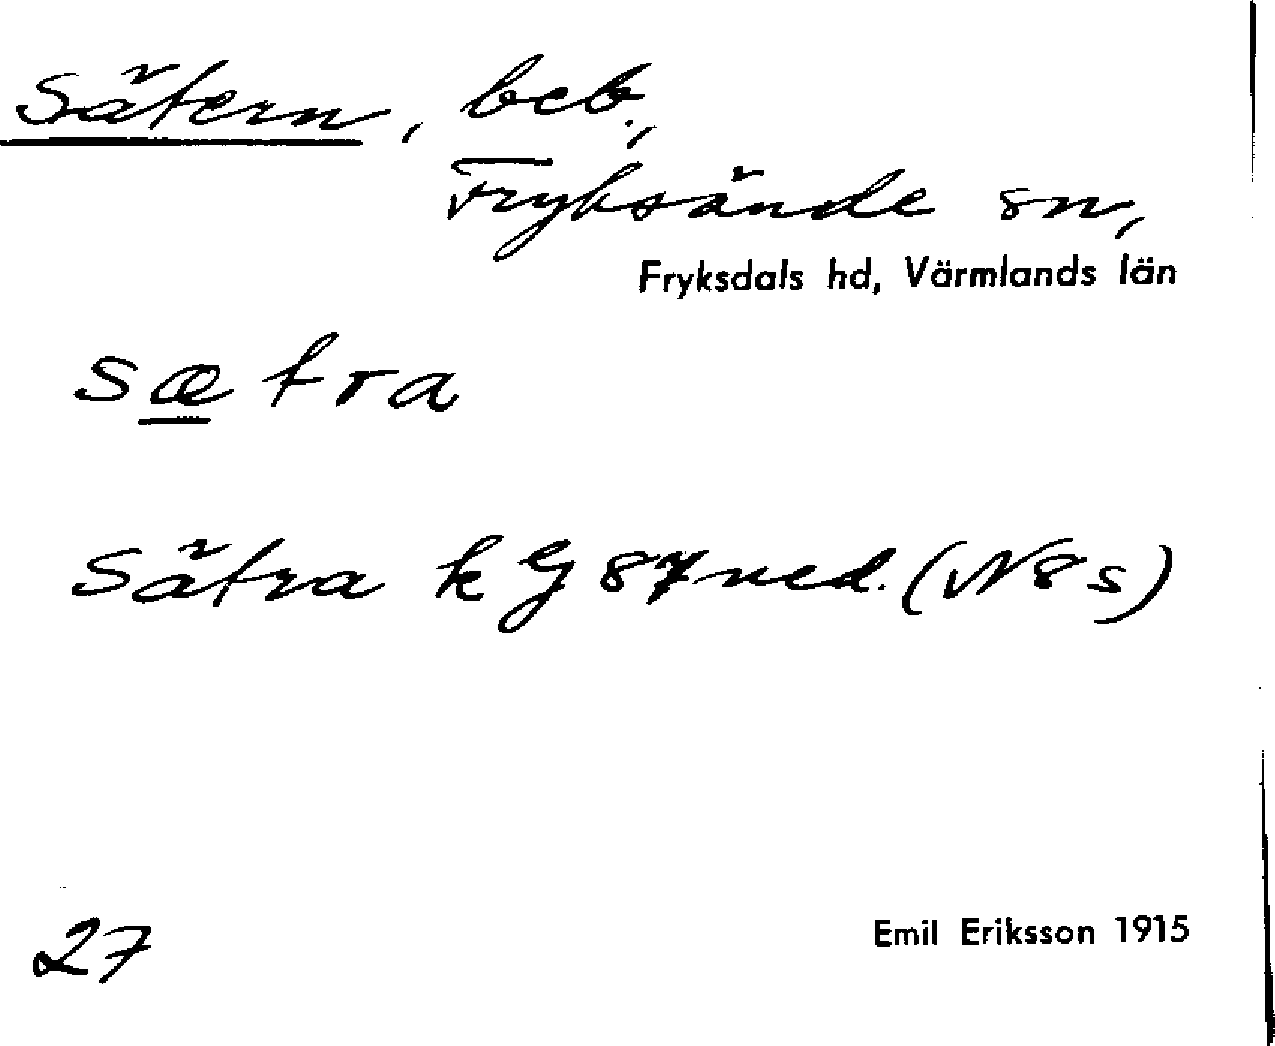 Sätern, beb.,
Fryksände sn,
Fryksdals hd, Värmlands län
sætra
Sätra k G 87 ned. (N 8 s)
27
Emil Eriksson 1915